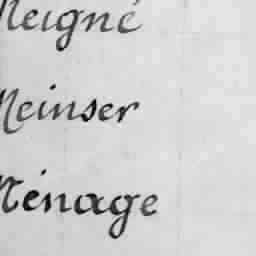 Meigné
Meinser
Ménage